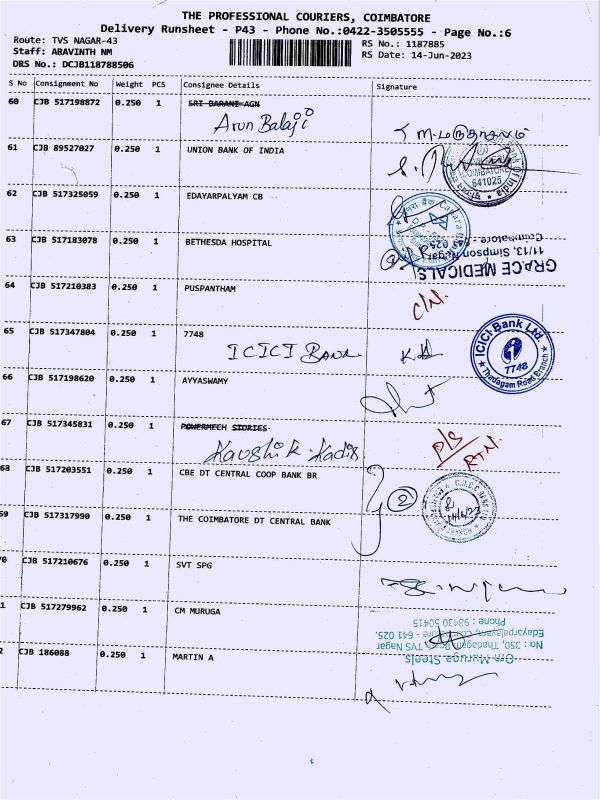 THE PROFESSIONAL COURIERS, COIMBATORE
Delivery Runsheet - P43 - Phone No.:0422-3505555 - Page No.:6
Route: TVS NAGAR-43
Staff: ARAVINTH NM
DRS No.: DCJB118788506
RS No.: 1187885
RS Date: 14-Jun-2023
S No Consignment No Weight PCS Consignee Details Signature
60 CJB 517198872 0.250 1 SRI BARANI AGN
Arun Balaji
61 CJB 89527027 0.250 1 UNION BANK OF INDIA
COIMBATORE
641025
62 CJB 517325059 0.250 1 EDAYARPALYAM CB
63 CJB 517183078 0.250 1 BETHESDA HOSPITAL
GRACE MEDICALS
11/13, Simpson Nagar
Coimbatore
64 CJB 517210383 0.250 1 PUSPANTHAM
65 CJB 517347804 0.250 1 7748
ICICI BANK
ICICI Bank Ltd.
7748
Thadagam Road Branch
66 CJB 517198620 0.250 1 AYYASWAMY
67 CJB 517345831 0.250 1 POWERMECH STORIES
D/S
RTN
68 CJB 517203551 0.250 1 CBE DT CENTRAL COOP BANK BR
2
14/6/23
59 CJB 517317990 0.250 1 THE COIMBATORE DT CENTRAL BANK
0 CJB 517210676 0.250 1 SVT SPG
1 CJB 517279962 0.250 1 CM MURUGA
Om Muruga Steels
No : 350, Thadagam Road, TVS Nagar
Edayarpalayam, Coimbatore - 641 025.
Phone : 98430 50415
2 CJB 186088 0.250 1 MARTIN A